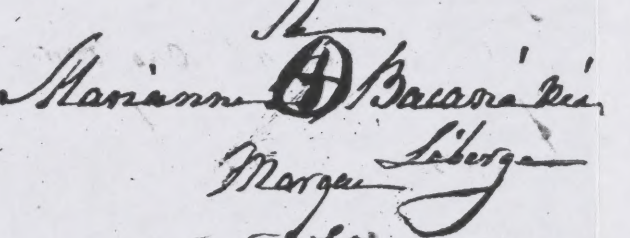 Sa
Marianne Bacarié née
Marque Léberge